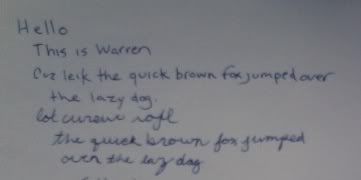 Hello
This is Warren
the quick brown fox jumped over
the lazy dog.
lol cursive rofl
the quick brown fox jumped
over the lazy dog